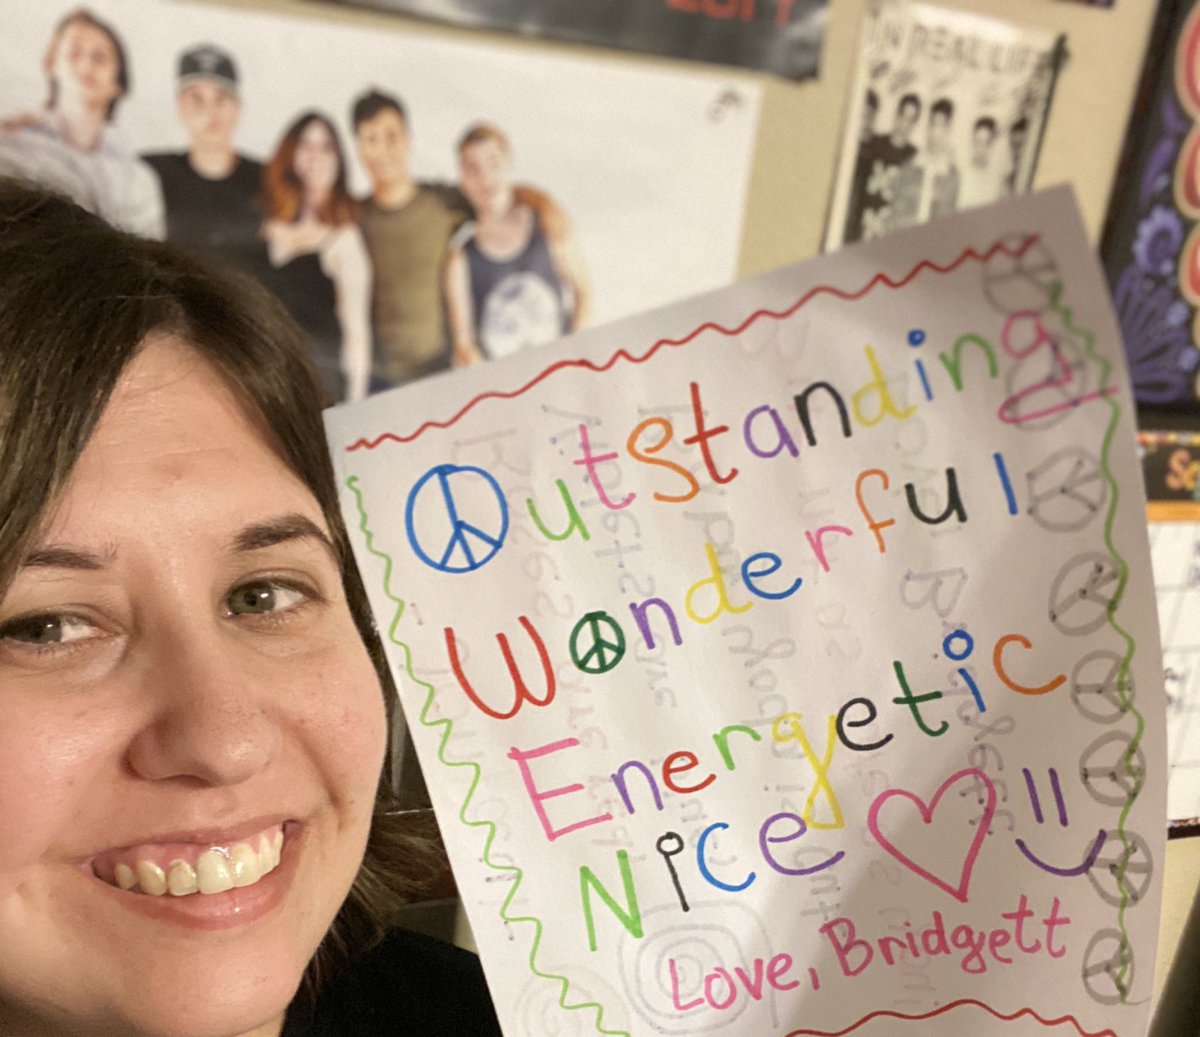 IN REAL LIFE
Outstanding
Wonderful
Energetic
Nice
Love, Bridgett